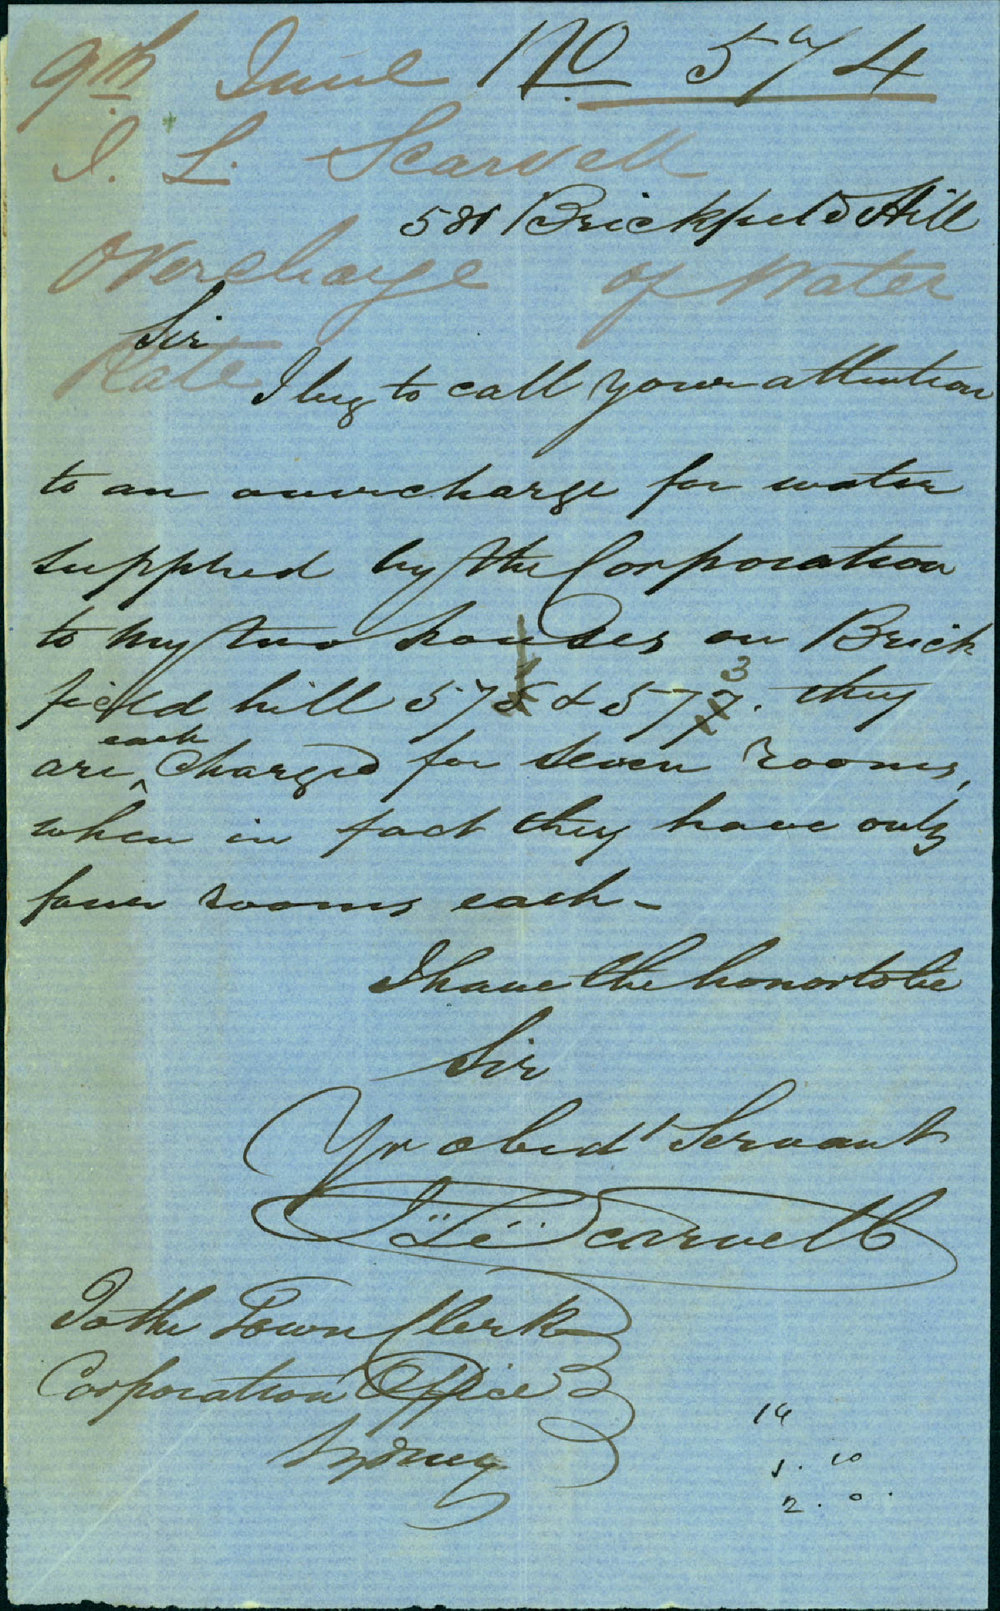 9th June No 574
J. L. Scarvell
581 Brickfield Hill
Overcharge of Water
Sir
Rate
I beg to call your attention
to an overcharge for water
supplied by the Corporation
to my two houses on Brick
field hill 571 & 573. they
each
are charged for seven rooms,
when in fact they have only
four rooms each -
I have the honor to be
Sir
Yr obedt Servant
J. L. Scarvell
To the Town Clerk
Corporation Office
Sydney
14
1. 10
2. 0.